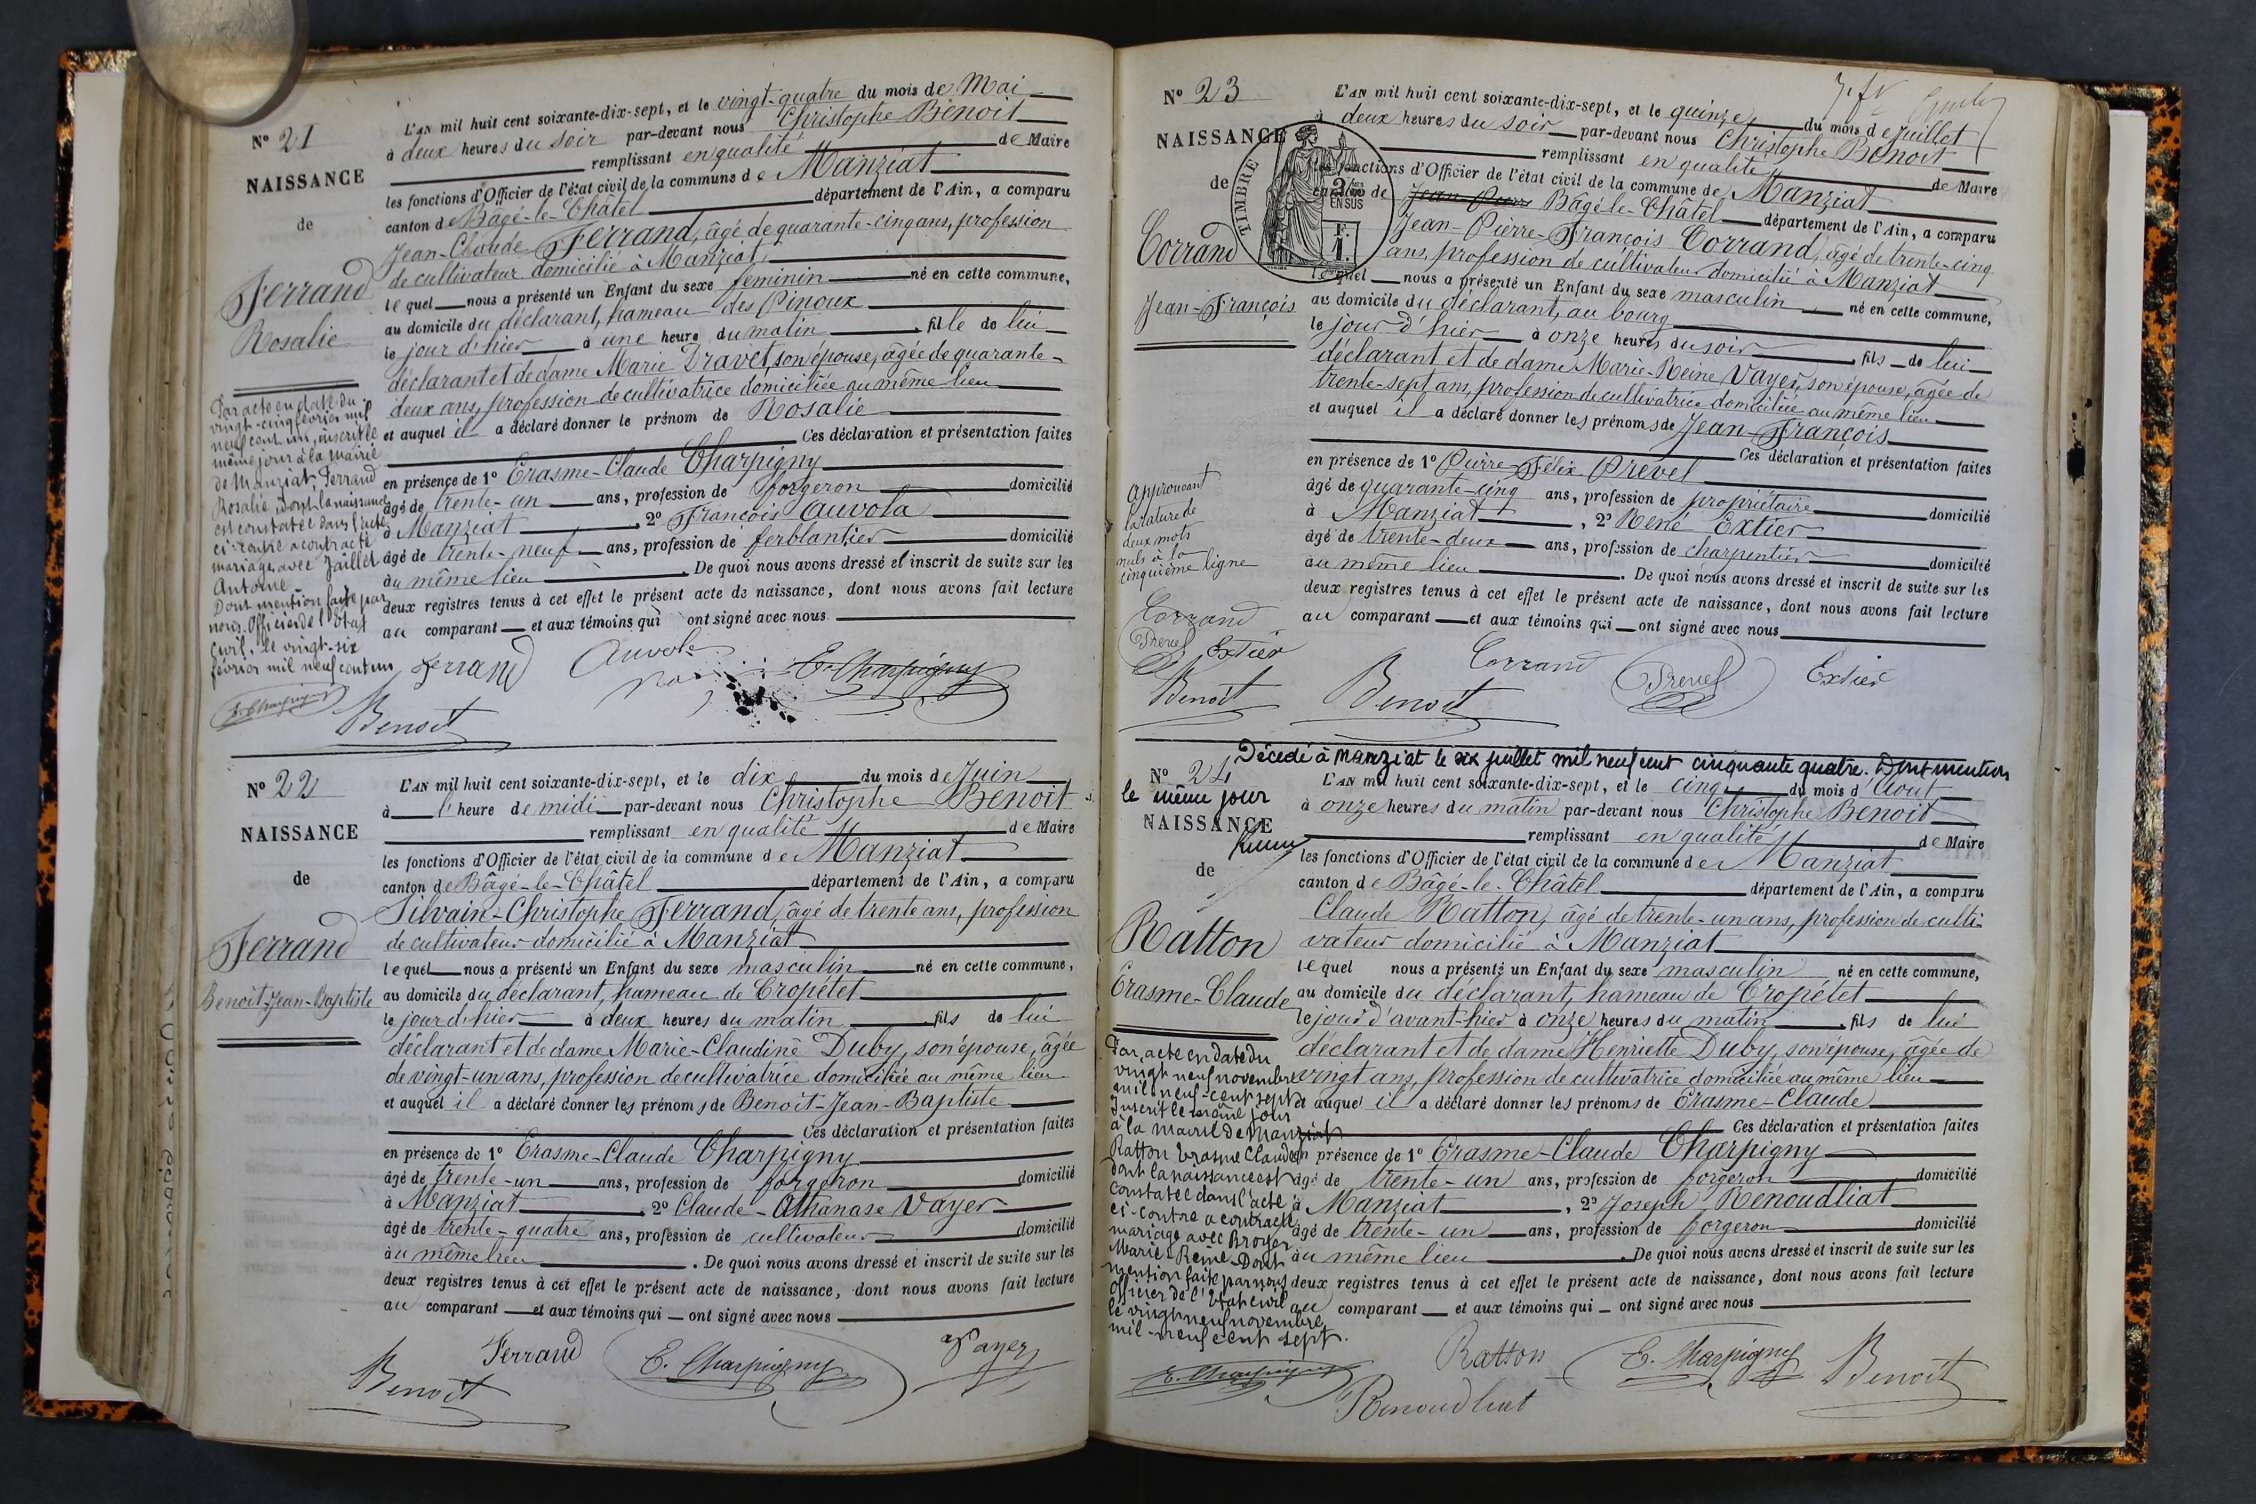 N° 21
NAISSANCE
de
Ferrand
Rosalie
L'AN mil huit cent soixante-dix-sept, et le vingt-quatre du mois de Mai
à deux heures du soir par-devant nous Christophe Benoit
remplissant en qualité de Maire
les fonctions d'Officier de l'état civil de la commune de Manziat
canton de Bâgé-le-Châtel département de l'Ain, a comparu
Jean-Claude Ferrand, âgé de quarante-cinq ans, profession
de cultivateur domicilié à Manziat,
lequel nous a présenté un Enfant du sexe féminin né en cette commune,
au domicile du déclarant, hameau des Pinoux
le jour d'hier à une heure du matin fille de lui
déclarant et de dame Marie Dravet, son épouse, âgée de quarante-
deux ans, profession de cultivatrice domiciliée au même lieu
et auquel il a déclaré donner le prénom de Rosalie
Ces déclaration et présentation faites
en présence de 1° Erasme-Claude Charpigny
âgé de trente-un ans, profession de forgeron domicilié
à Manziat, 2° François Auvola
âgé de trente-neuf ans, profession de ferblantier domicilié
au même lieu. De quoi nous avons dressé et inscrit de suite sur les
deux registres tenus à cet effet le présent acte de naissance, dont nous avons fait lecture
au comparant et aux témoins qui ont signé avec nous.
Par acte en date du
vingt-cinq février mil
neuf cent un, inscrit le
même jour à la mairie
de Manziat, Ferrand
Rosalie, dont la naissance
est constatée dans l'acte
ci-contre a contracté
mariage avec Jaillet
Antoine
Dont mention faite par
nous Officier de l'Etat
Civil, le vingt-six
février mil neuf cent un
E. Charpigny
Ferrand Auvola E. Charpigny
Benoit
N° 22
NAISSANCE
de
Ferrand
Benoit-Jean-Baptiste
L'AN mil huit cent soixante-dix-sept, et le dix du mois de Juin
à l'heure de midi par-devant nous Christophe Benoit
remplissant en qualité de Maire
les fonctions d'Officier de l'état civil de la commune de Manziat
canton de Bâgé-le-Châtel département de l'Ain, a comparu
Silvain-Christophe Ferrand, âgé de trente ans, profession
de cultivateur domicilié à Manziat
lequel nous a présenté un Enfant du sexe masculin né en cette commune,
au domicile du déclarant, hameau de Cropétet
le jour d'hier à deux heures du matin fils de lui
déclarant et de dame Marie-Claudine Duby, son épouse, âgée
de vingt-un ans, profession de cultivatrice domiciliée au même lieu
et auquel il a déclaré donner les prénoms de Benoit-Jean-Baptiste
Ces déclaration et présentation faites
en présence de 1° Erasme-Claude Charpigny
âgé de trente-un ans, profession de forgeron domicilié
à Manziat, 2° Claude-Athanase Vayer
âgé de trente-quatre ans, profession de cultivateur domicilié
au même lieu. De quoi nous avons dressé et inscrit de suite sur les
deux registres tenus à cet effet le présent acte de naissance, dont nous avons fait lecture
au comparant et aux témoins qui ont signé avec nous
Ferrand E. Charpigny Vayer
Benoit
N° 23
NAISSANCE
de
Corrand
Jean-François
TIMBRE
2/10 EN SUS
F. 1.
L'AN mil huit cent soixante-dix-sept, et le quinze du mois de Juillet
à deux heures du soir par-devant nous Christophe Benoit
remplissant en qualité de Maire
les fonctions d'Officier de l'état civil de la commune de Manziat
canton de Jean-Pierre Bâgé-le-Châtel département de l'Ain, a comparu
Jean-Pierre-François Corrand, âgé de trente-cinq
ans, profession de cultivateur domicilié à Manziat
lequel nous a présenté un Enfant du sexe masculin né en cette commune,
au domicile du déclarant, au bourg
le jour d'hier à onze heures du soir fils de lui
déclarant et de dame Marie-Reine Vayer, son épouse, âgée de
trente-sept ans, profession de cultivatrice domiciliée au même lieu
et auquel il a déclaré donner les prénoms de Jean-François
Ces déclaration et présentation faites
en présence de 1° Pierre-Félix Prevel
âgé de quarante-cinq ans, profession de propriétaire domicilié
à Manziat, 2° René Extier
âgé de trente-deux ans, profession de charpentier domicilié
au même lieu. De quoi nous avons dressé et inscrit de suite sur les
deux registres tenus à cet effet le présent acte de naissance, dont nous avons fait lecture
au comparant et aux témoins qui ont signé avec nous
Approuvant
la rature de
deux mots
nuls à la
cinquième ligne
Corrand
Prevel Extier
Benoit
Corrand Prevel Extier
Benoit
Décédé à Manziat le dix juillet mil neuf cent cinquante quatre. Dont mention
le même jour
N° 24
NAISSANCE
de
Ratton
Erasme-Claude
L'AN mil huit cent soixante-dix-sept, et le cinq du mois d'Août
à onze heures du matin par-devant nous Christophe Benoit
remplissant en qualité de Maire
les fonctions d'Officier de l'état civil de la commune de Manziat
canton de Bâgé-le-Châtel département de l'Ain, a comparu
Claude Ratton, âgé de trente-un ans, profession de culti-
vateur domicilié à Manziat
lequel nous a présenté un Enfant du sexe masculin né en cette commune,
au domicile du déclarant, hameau de Cropétet
le jour d'avant-hier à onze heures du matin fils de lui
déclarant et de dame Henriette Duby, son épouse, âgée de
vingt ans, profession de cultivatrice domiciliée au même lieu
et auquel il a déclaré donner les prénoms de Erasme-Claude
Ces déclaration et présentation faites
en présence de 1° Erasme-Claude Charpigny
âgé de trente-un ans, profession de forgeron domicilié
à Manziat, 2° Joseph Renoudliat
âgé de trente-un ans, profession de forgeron domicilié
au même lieu. De quoi nous avons dressé et inscrit de suite sur les
deux registres tenus à cet effet le présent acte de naissance, dont nous avons fait lecture
au comparant et aux témoins qui ont signé avec nous
Par acte en date du
vingt neuf novembre
mil neuf-cent sept
Inscrit le même jour
à la mairie de Manziat
Ratton Erasme Claude
dont la naissance est
constatée dans l'acte
ci-contre a contracté
mariage avec Broyer
Marie-Reine-Dont
mention faite par nous
Officier de l'Etat civil
le vingt neuf novembre
mil-neuf cent sept.
E. Charpigny
Ratton E. Charpigny Benoit
Renoudliat